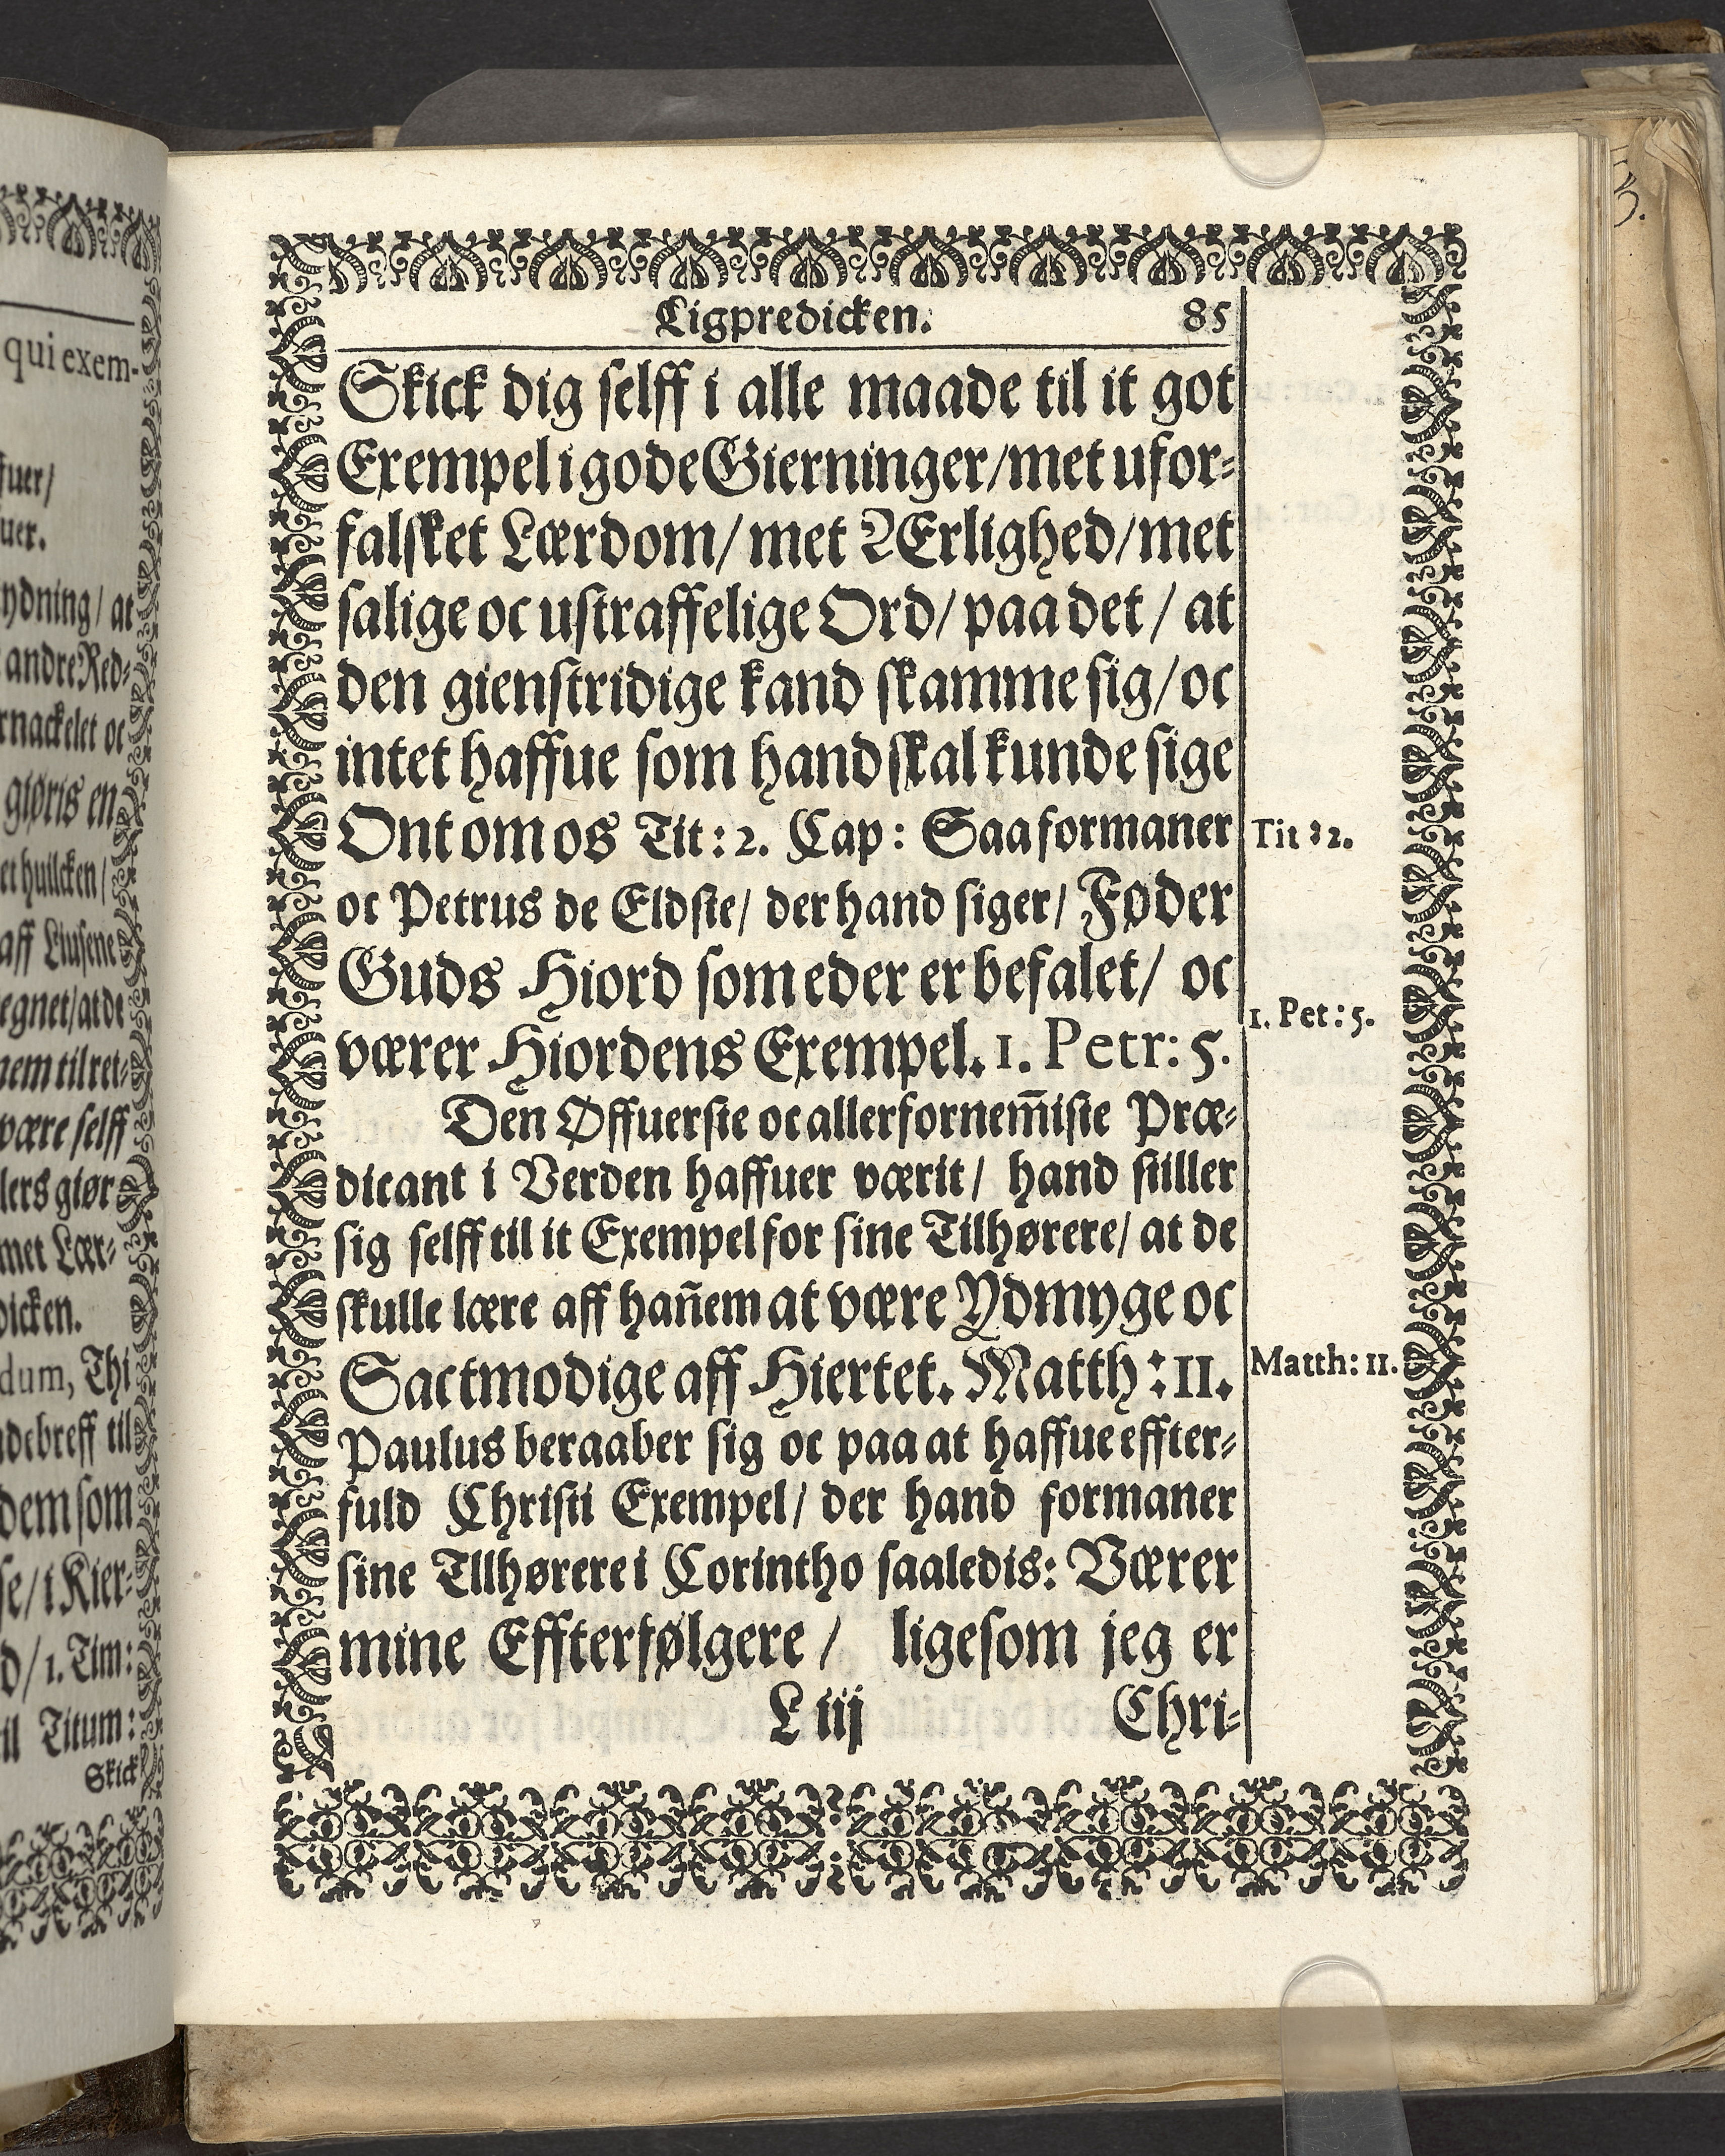 Ligpredicken. 85
Skick dig selff i alle maade til it got
Exempel i gode Gierninger/ met ufor-
falsket Lærdom/ met Ærlighed/ met
salige oc ustraffelige Ord/ paa det / at
den gienstridige kand skamme sig/ oc
intet haffue som hand skal kunde sige
Ont om os Tit: 2. Cap: Saa formaner
Tit : 2.
oc Petrus de Eldste/ der hand siger/ Føder
Guds Hiord som eder er befalet/ oc
værer Hiordens Exempel. 1. Petr: 5.
1. Pet: 5.
Den Øffuerste oc allerfornem̄iste Præ-
dicant i Verden haffuer værit/ hand stiller
sig selff til it Exempel for sine Tilhørere/ at de
skulle lære aff han̄em at være Ydmyge oc
Sactmodige aff Hiertet. Matth : 11.
Matth: 11.
Paulus beraaber sig oc paa at haffue effter-
fuld Christi Exempel/ der hand formaner
sine Tllhørere i Corintho saaledis: Værer
mine Effterfølgere / ligesom jeg er
L iij Chri-
qui exem-
fuer/
uer.
ydning/ at
andre Red-
rnackelet oc
giøris en
et huilcken/
aff Liusene
egnet/ at de
nem til ret-
være selff
lers giør
met Lær-
dicken.
dum, Thi
ndebreff til
dem som
se/ i Kier-
d/ 1. Tim:
il Titum:
Skick
3.